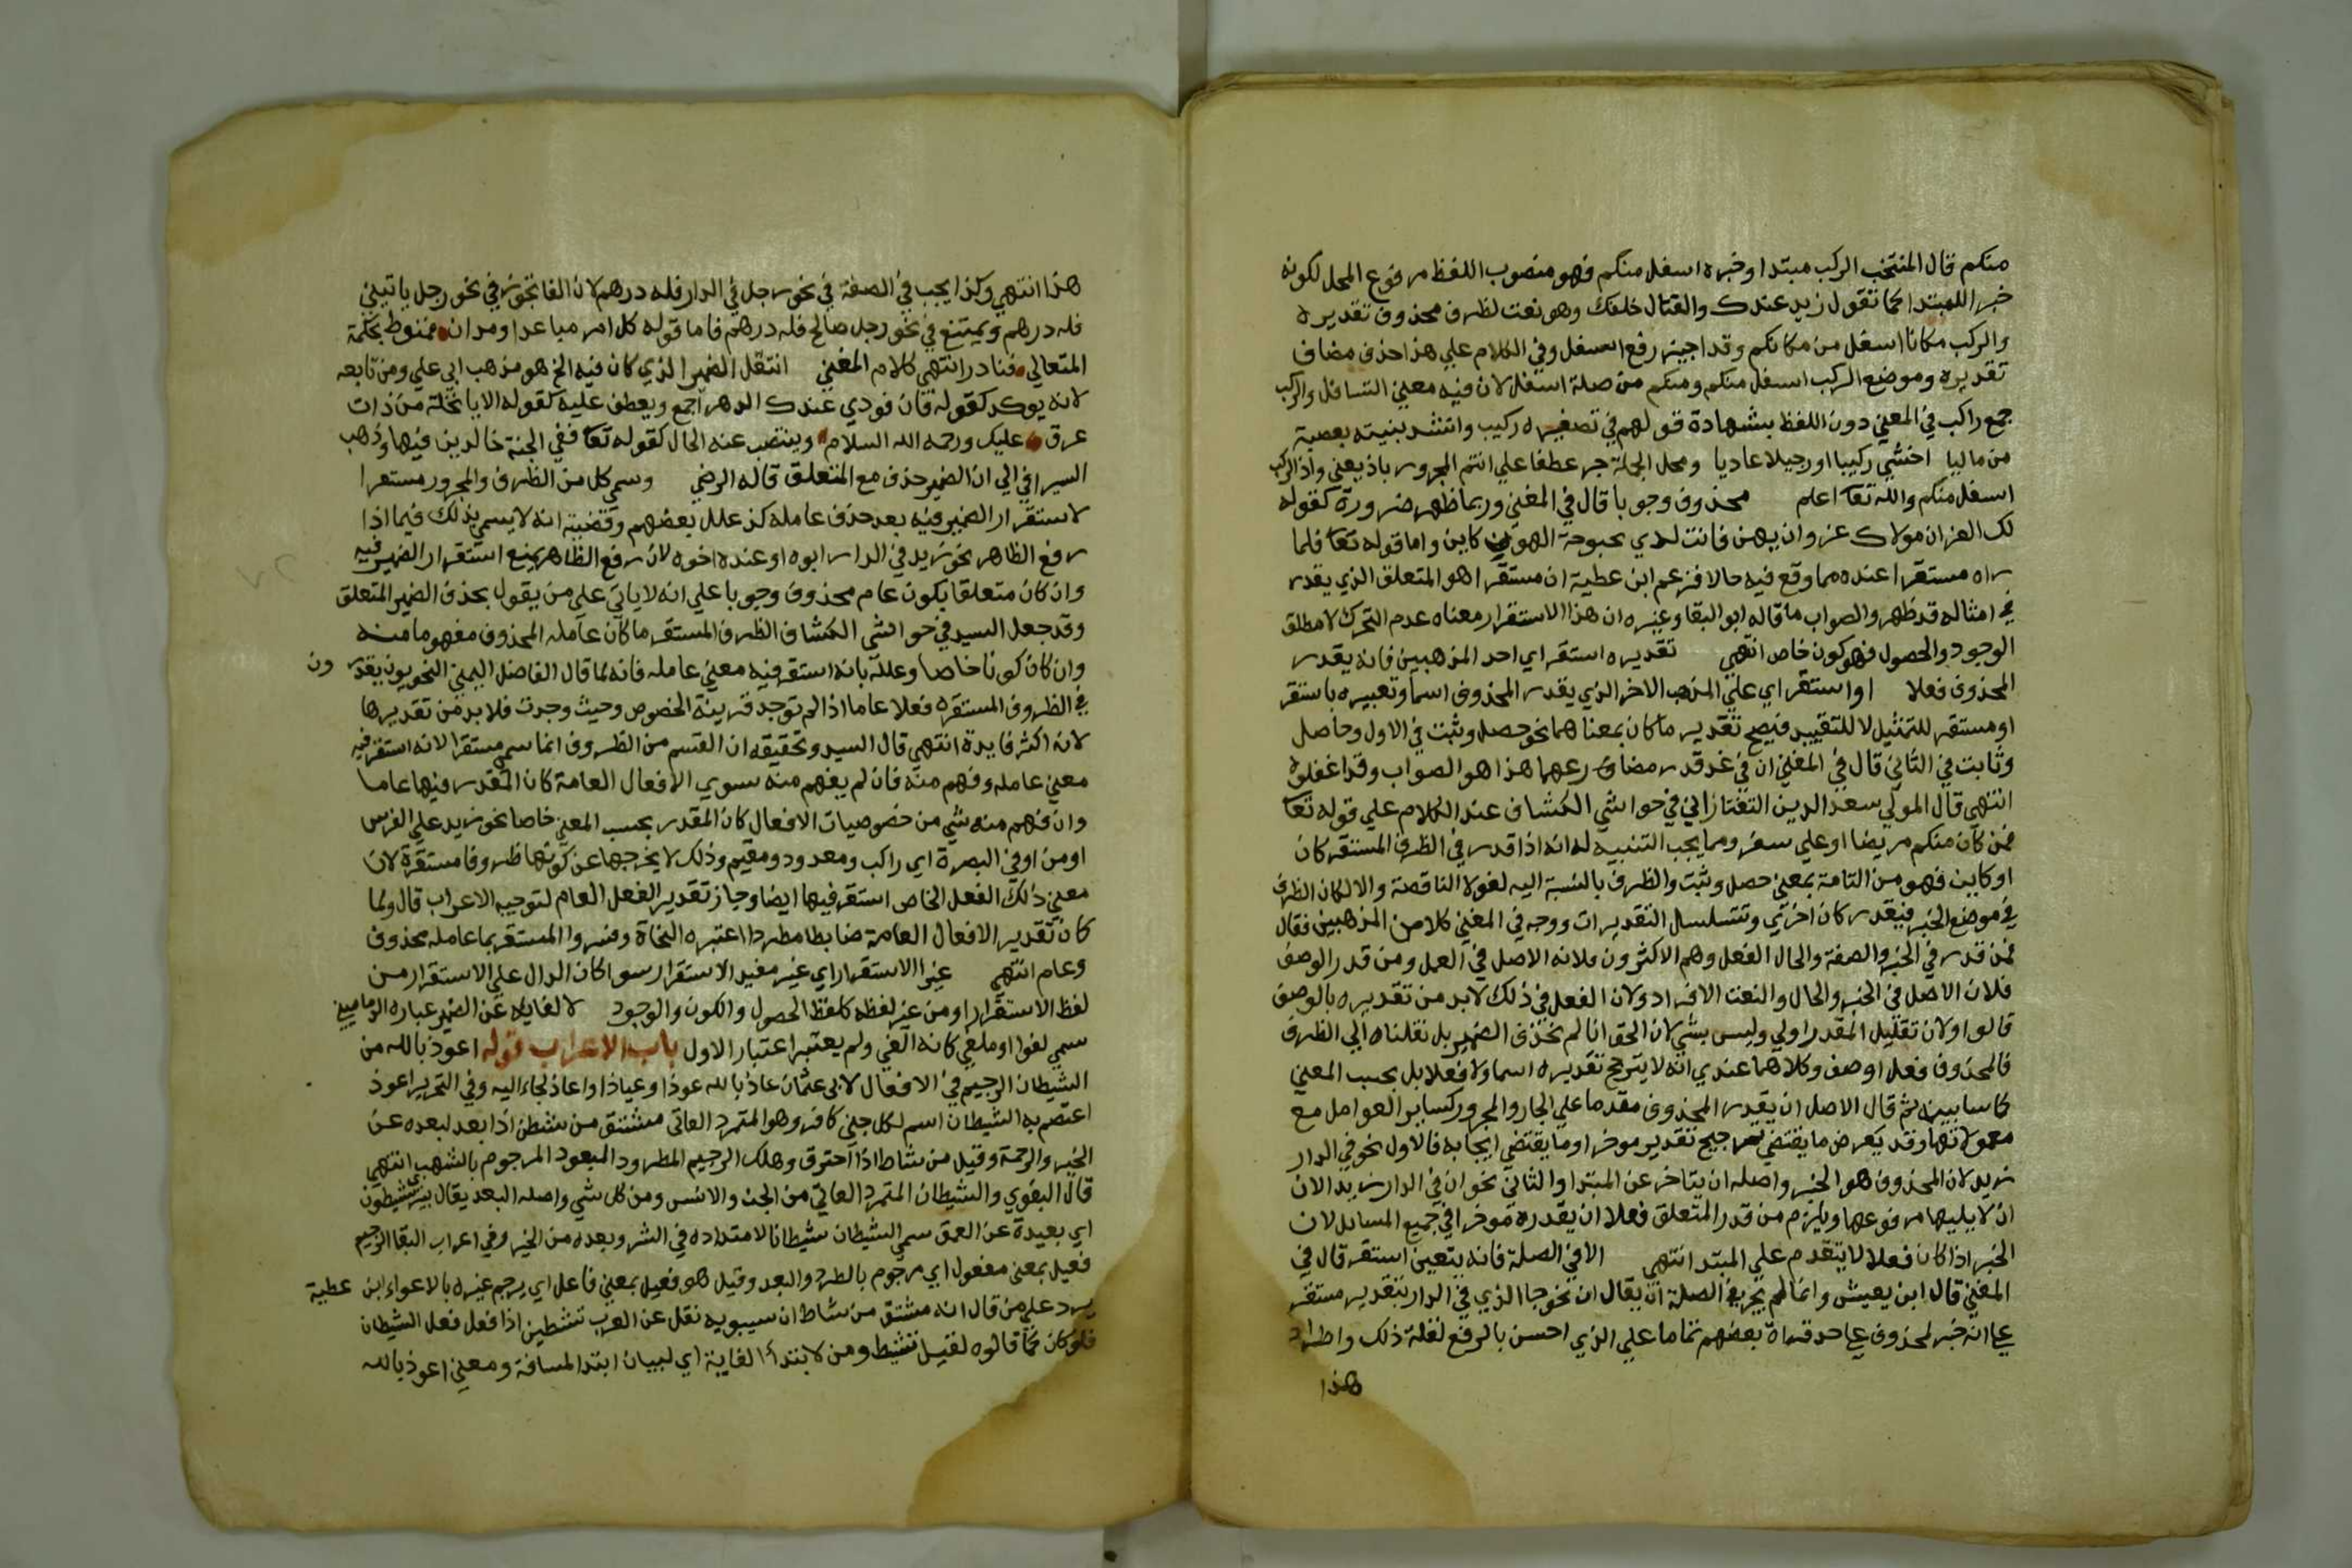 منكم قال المنتخب الركب مبتدا وخبره اسفل منكم فهو منصوب اللفظ مرفوع المحل لكونه
خبرا للمبتدا كما تقول زيد عندك والقتال خلفك وهو نعت لظرف محذوف تقديره
والركب مكانا اسفل من مكانكم وقد اجيز رفع اسفل وفي الكلام علي هذا حذف مضاف
تقديره وموضع الركب اسفل منكم ومنكم من صلة اسفل لان فيه معني التسافل والركب
جمع راكب في المعني دون اللفظ بشهادة قولهم في تصغيره ركيب وانشد بنيته بعصبة
من ماليا اخشي ركيبا او رجيلا عاديا ومحل الجملة جر عطفا علي انتم المجرور باذ يعني واذ الركب
اسفل منكم والله تعا اعلم محذوف وجوبا قال في المغني وربما ظهر ضرورة كقوله
لك العز ان مولاك عز وان يهن فانت لدي بحبوحة الهون كاين واما قوله تعا فلما
راه مستقرا عنده مما وقع فيه حالا فزعم ابن عطية ان مستقرا هو المتعلق الذي يقدر
في امثاله قد ظهر والصواب ما قاله ابو البقا وغيره ان هذا الاستقرار معناه عدم التحرك لا مطلق
الوجود والحصول فهو كون خاص انتهي تقديره استقر اي احد المذهبين فانه يقدر
المحذوف فعلا او استقر اي علي المذهب الاخر الذي يقدر المحذوف اسما وتعبيره باستقر
او مستقر للتمثيل لا للتقييد فيصح تقدير ما كان بمعناهما نحو حصل وثبت في الاول وحاصل
وثابت في الثاني قال في المغني ان في غد قدر مضارعهما هذا هو الصواب وقد اغفلوه
انتهي قال المولي سعد الدين التفتازاني في حواشي الكشاف عند الكلام علي قوله تعا
فمن كان منكم مريضا او علي سفر ومما يجب التنبيه له انه اذا قدر في الظرف المستقر كان
او كاين فهو من التامة بمعني حصل وثبت والظرف بالنسبة اليه لغو لا الناقصة والا لكان الظرف
في موضع الخبر فيقدر كان اخري وتتسلسل التقديرات ووجه في المغني كلا من المذهبين فقال
فمن قدر في الخبر والصفة والحال الفعل وهم الاكثرون فلانه الاصل في العمل ومن قدر الوصف
فلان الاصل في الخبر والحال والنعت الافراد ولان الفعل في ذلك لا بد من تقديره بالوصف
قالوا ولان تقليل المقدر اولي وليس بشي لان الحق انا لم نحذف الضمير بل نقلناه الي الظرف
فالمحذوف فعل او وصف وكلاهما عندي انه لا يترجح تقديره اسما ولا فعلا بل بحسب المعني
كما سابين ثم قال الاصل ان يقدر المحذوف مقدما علي الجار والمجرور كساير العوامل مع
معمولاتها وقد يعرض ما يقتضي ترجيح تقدير موخرا وما يقتضي ايجابه فالاول نحو في الدار
زيد لان المحذوف هو الخبر واصله ان يتاخر عن المبتدا والثاني نحو ان في الدار زيدا لان
ان لا يليها مرفوعها ويلزم من قدر المتعلق فعلا ان يقدره موخرا في جميع المسايل لان
الخبر اذا كان فعلا لا يتقدم علي المبتدا انتهي الا في الصلة فانه يتعين استقر قال في
المغني قال ابن يعيش وانما لم يجز في الصلة ان يقال ان نحو جا الذي في الدار بتقدير مستقر
علي انه خبر لمحذوف علي حد قراة بعضهم تماما علي الذي احسن بالرفع لقلة ذلك واطراد
هذا
هذا انتهي وكذا يجب في الصفة في نحو رجل في الدار فله درهم لان الفا تجوز في نحو رجل ياتيني
فله درهم ويمتنع في نحو رجل صالح فله درهم فاما قوله كل امر مباعد او مدان فمنوط بحكمة
المتعالي فنادر انتهي كلام المغني انتقل الضمير الذي كان فيه الخ هو مذهب ابي علي ومن تابعه
لانه يوكد كقوله فان فودي عندك الدهر اجمع ويعطف عليه كقوله الا يا نخلة من ذات
عرق عليك ورحمه الله السلام وينتصب عنه الحال كقوله تعا ففي الجنة خالدين فيها وذهب
السيرافي الي ان الضمير حذف مع المتعلق قاله الرضي وسمي كل من الظرف والمجرور مستقرا
لاستقرار الضمير فيه بعد حذف عامله كذ علل بعضهم وقضيته انه لا يسمي بذلك فيما اذا
رفع الظاهر نحو زيد في الدار ابوه او عنده اخوه لان رفع الظاهر يمنع استقرار الضمير فيه
وان كان متعلقا بكون عام محذوف وجوبا علي انه لا ياتي علي من يقول بحذف الضمير المتعلق
وقد جعل السيد في حواشي الكشاف الظرف المستقر ما كان عامله المحذوف مفهوما منه
وان كان كونا خاصا وعلله بانه استقر فيه معني عامله فانه لما قال الفاضل اليمني النحويون يقدرون
في الظروف المستقره فعلا عاما اذا لم توجد قرينة الخصوص وحيث وجدت فلا بد من تقديرها
لانه اكثر فايدة انتهي قال السيد وتحقيقه ان القسم من الظروف انما سمي مستقرا لانه استقر فيه
معني عامله وفهم منه فان لم يفهم منه سوي الافعال العامة كان المقدر فيها عاما
وان فهم منه شي من خصوصيات الافعال كان المقدر بحسب المعني خاصا نحو زيد علي الفرس
او من او في البصرة اي راكب ومعدود ومقيم وذلك لا يخرجها عن كونها ظروفا مستقرة لان
معني ذلك الفعل الخاص استقر فيها ايضا وجاز تقدير الفعل العام لتوجيه الاعراب قال ولما
كان تقدير الافعال العامة ضابطا مطردا اعتبره النحاة وفسروا المستقر بما عامله محذوف
وعام انتهي غير الاستقرار اي غير مفيد الاستقرار سوا كان الدال علي الاستقرار من
لفظ الاستقرار او من غير لفظه كلفظ الحصول والكون والوجود لالغايه عن الضمير عباره الدماميني
سمي لغوا او ملغي كانه الغي ولم يعتبر اعتبار الاول باب الاعراب قوله اعوذ بالله من
الشيطان الرجيم في الافعال لابي عثمان عاذ بالله عوذا وعياذا واعاذ لجا اليه وفي التحرير اعوذ
اعتصم به الشيطان اسم لكل جني كافر وهو المتمرد العاتي مشتق من شطن اذا بعد لبعده عن
الخير والرحمة وقيل من شاط اذا احترق وهلك الرجيم المطرود المبعود المرجوم بالشهب انتهي
قال البغوي والشيطان المتمرد العاتي من الجن والانس ومن كل شي واصله البعد يقال بير شطون
اي بعيدة عن العمق سمي الشيطان شيطانا لامتداده في الشر وبعده من الخير وفي اعراب البقا الرجيم
فعيل بمعني مفعول اي مرجوم بالطرد والبعد وقيل هو فعيل بمعني فاعل اي يرجم غيره بالاغواء ابن عطية
يرد علي من قال انه مشتق من شاط ان سيبويه نقل عن العرب تشطين اذا فعل فعل الشيطان
فلو كان كما قالوه لقيل تشيط ومن لابتدأ الغاية اي لبيان ابتدا المسافة ومعني اعوذ بالله